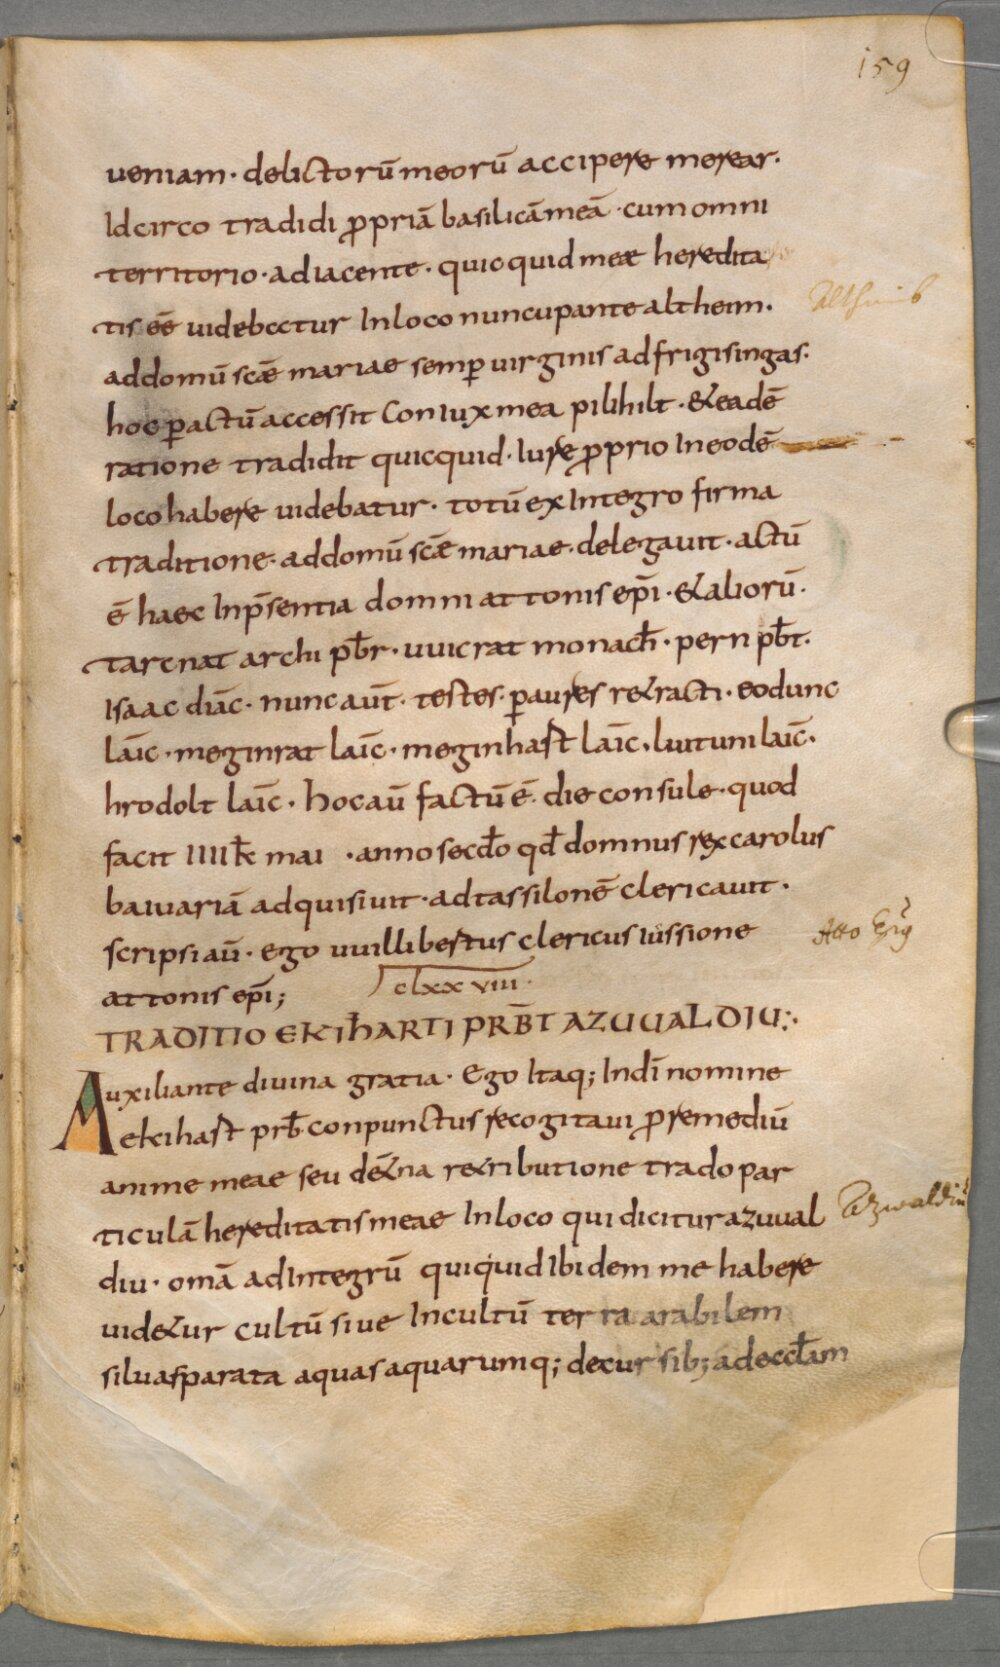 159
ueniam · delictorū meorū accipere merear ·
Idcirco tradidi ꝓpriā basilicā meā · cum omni
territorio · adiacente · quicquid meae heredita
tis eē̄ uidebatur In loco nuncupante altheim ·
ad domū scae̅ mariae semꝑ uirginis ad frigisingas ·
hoc ꝑactū accessit Coniux mea pilihilt · & eadē
ratione tradidit quicquid · Iure ꝓprio In eodē
loco habere uidebatur · totū ex Integro firma
traditione · ad domū scae̅ mariae · delegauit · actū
ē haec In p̄sentia domni attonis ep̄i · & aliorū ·
tarcnat archi pb̄r · uuicrat monach̄ · pern pb̄t ·
Isaac diāc · nunc aūt · testes · ꝑ aures r&racti · eodunc
laīc · meginrat laīc · meginhast laīc · liutuni laīc ·
hrodolt laīc · hoc aū factū ē · die consule · quod
facit IIII k̄ mai · anno secd̄o qd̄ domnus rex carolus
baiuuariā adquisiuit · ad tassilonē clericauit ·
scripsi aū · ego uuillibertus clericus iussione
Atto Epis
attonis ep̄i;
clxxviii ·
TRADITIO EKIHARTI PRB̄T AZUUALDIU ·
Auxiliante diuina gratia · Ego Itaq; In dī nomine
ekihart prb̄ conpunctus recogitaui ꝓ remediū
anime meae seu d&́na r&ributione trado par
ticulā hereditatis meae In loco qui dicitur azuual
Azwaldiu
diu · omā ad Integrū quiquid Ibidem me habere
uid&ur cultū siue Incultū terra arabilem
siluas parata aquas aquarumq; decursib; ad eccl̄am